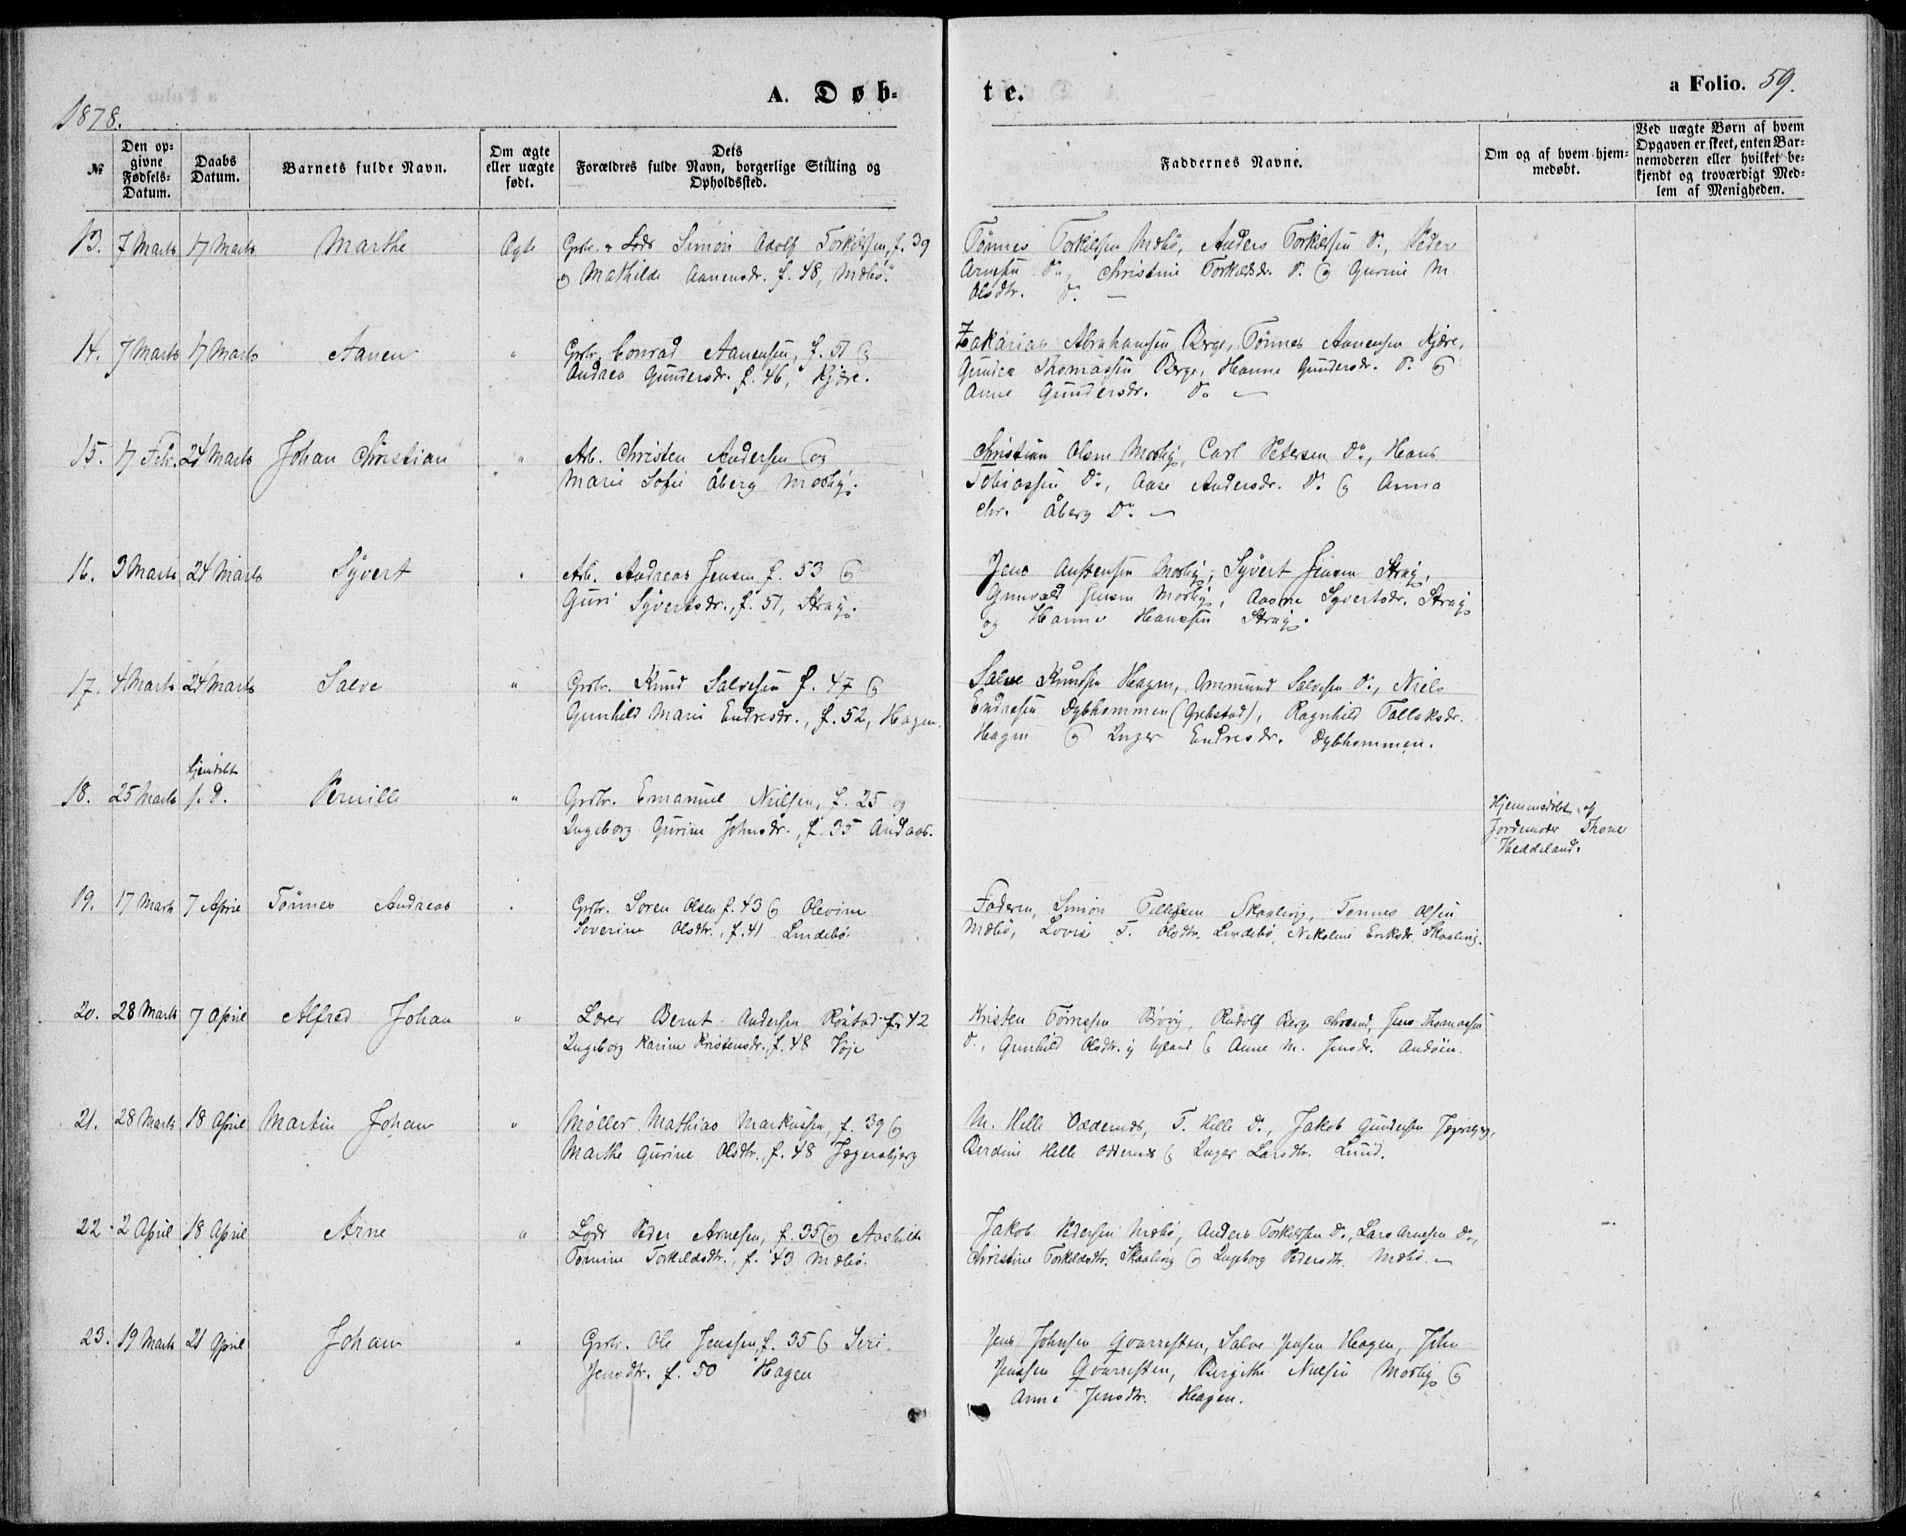 1878.
A. Døb-
te.
a Folio. 59.
№
Den op-
givne
Fødsels-
Datum.
Daabs
Datum.
Barnets fulde Navn.
Om ægte
eller uægte
født.
Dets
Forældres fulde Navn, borgerlige Stilling og
Opholdssted.
Faddernes Navne.
Om og af hvem hjem-
medøbt.
Ved uægte Børn af hvem
Opgaven er skeet, enten Bar-
nemoderen eller hvilket be-
kjendt og troværdigt Med-
lem af Menigheden.
13. 7 Marts 17 Marts Marthe Ægte Grbr. & Lods Simon Adolf Torkilsen, f. 39
og Mathilde Aanensdr. f. 48, Mæbø.
Tønnes Torkilsen Mæbø, Anders Torkilsen Do., Peder
Arnesen Do., Christine Torkildsdr. Do. og Gurine M.
Olsdtr. Do. —
14. 7 Marts 17 Marts Aanen " Grbr. Conrad Aanensen, f. 51 og
Andrea Gundersdr. f. 46, Kjære.
Zakarias Abrahamsen Berge, Tønnes Aanensen Kjære,
Thomassen Berge, Hanne Gundersdr. Do. og
Anne Gundersdr. Do. —
15. 17 Febr. 24 Marts Johan Christian " Arb. Christen Andersen og
Marie Sofie Åberg Mosby.
Christian Olsen Mosby, Carl Petersen Do., Hans
Tobiassen Do., Aase Andersdr. Do. og Anna
Chr. Åberg Do. —
16. 3 Marts 24 Marts Syvert " Arb. Andreas Jensen f. 53 og
Guri Syvertsdr., f. 51, Stray.
Jens Austensen Mosby, Syvert Jensen Stray,
Gunvald Jensen Mosby, Aasne Syvertsdr. Stray
og Hanne Hansen Stray.
17. 4 Marts 24 Marts Salve " Grbr. Knud Salvesen f. 47 og
Gunhild Marie Endresdr., f. 52, Hagen.
Salve Knudsen Hagen, Ommund Salvesen Do., Niels
Endresen Dybhommen (Grebstad), Ragnhild Tallaksdr.
Hagen og Inger Endresdr. Dybhommen.
hjemdøbt
18. 25 Marts s. d. Pernille " Grbr. Emanuel Nielsen, f. 25 og
Ingeborg Gurine Johnsdr., f. 35 Andaas.
Hjemmedøbt af
Jordemoder Thone
Heddeland.
19. 17 Marts 7 April Tønnes Andreas " Grbr. Søren Olsen f. 43 og Olevine
Severine Olsdtr., f. 41 Lindebø.
Faderen, Simon Tellefsen Skaalevig, Tønnes Olsen
Mæbø, Lovise T. Olsdtr. Lindebø, Nikoline Eriksdr. Skaalevig.
20. 28 Marts 7 April Alfred Johan " Lærer Bernt Andersen Røstad f. 42
Ingeborg Karine Kristensdr., f. 48 Voje
Kristen Tørresen Rudolf Berge Chrsand, Jens Thomassen
Do., Gunhild Olsdtr. og Anne M. Jensdr. Andøen.
21. 28 Marts 18 April Martin Johan " Møller Mathias Markussen, f. 39 og
Marthe Gurine Olsdtr., f. 48 Jegersbjerg
M. Helle Oddernes, T. Helle Do., Jakob Gundersen Jegersbjerg,
Berdine Helle Oddernes og Inger Larsdtr. Lund.
22. 2 April 18 April Arne " Lods Peder Arnesen, f. 35 og Aashilde
Tomine Torkeldsdtr., f. 43 Mæbø.
Jakob Pedersen Mæbø, Anders Torkelsen Do., Lars Arnesen Do.,
Christine Torkeldsdtr. Skaalevig og Ingeborg Pedersdtr. Mæbø. —
23. 19 Marts 21 April Johan " Grbr. Ole Jenssen, f. 35 og Seri
Jensdtr. f. 50 Hagen
Jens Johnsen Qvarresten, Salve Jensen Hagen, John
Jenssen Qvarresten, Bergithe Nielsen Mosby og
Anne Jensdtr. Hagen.